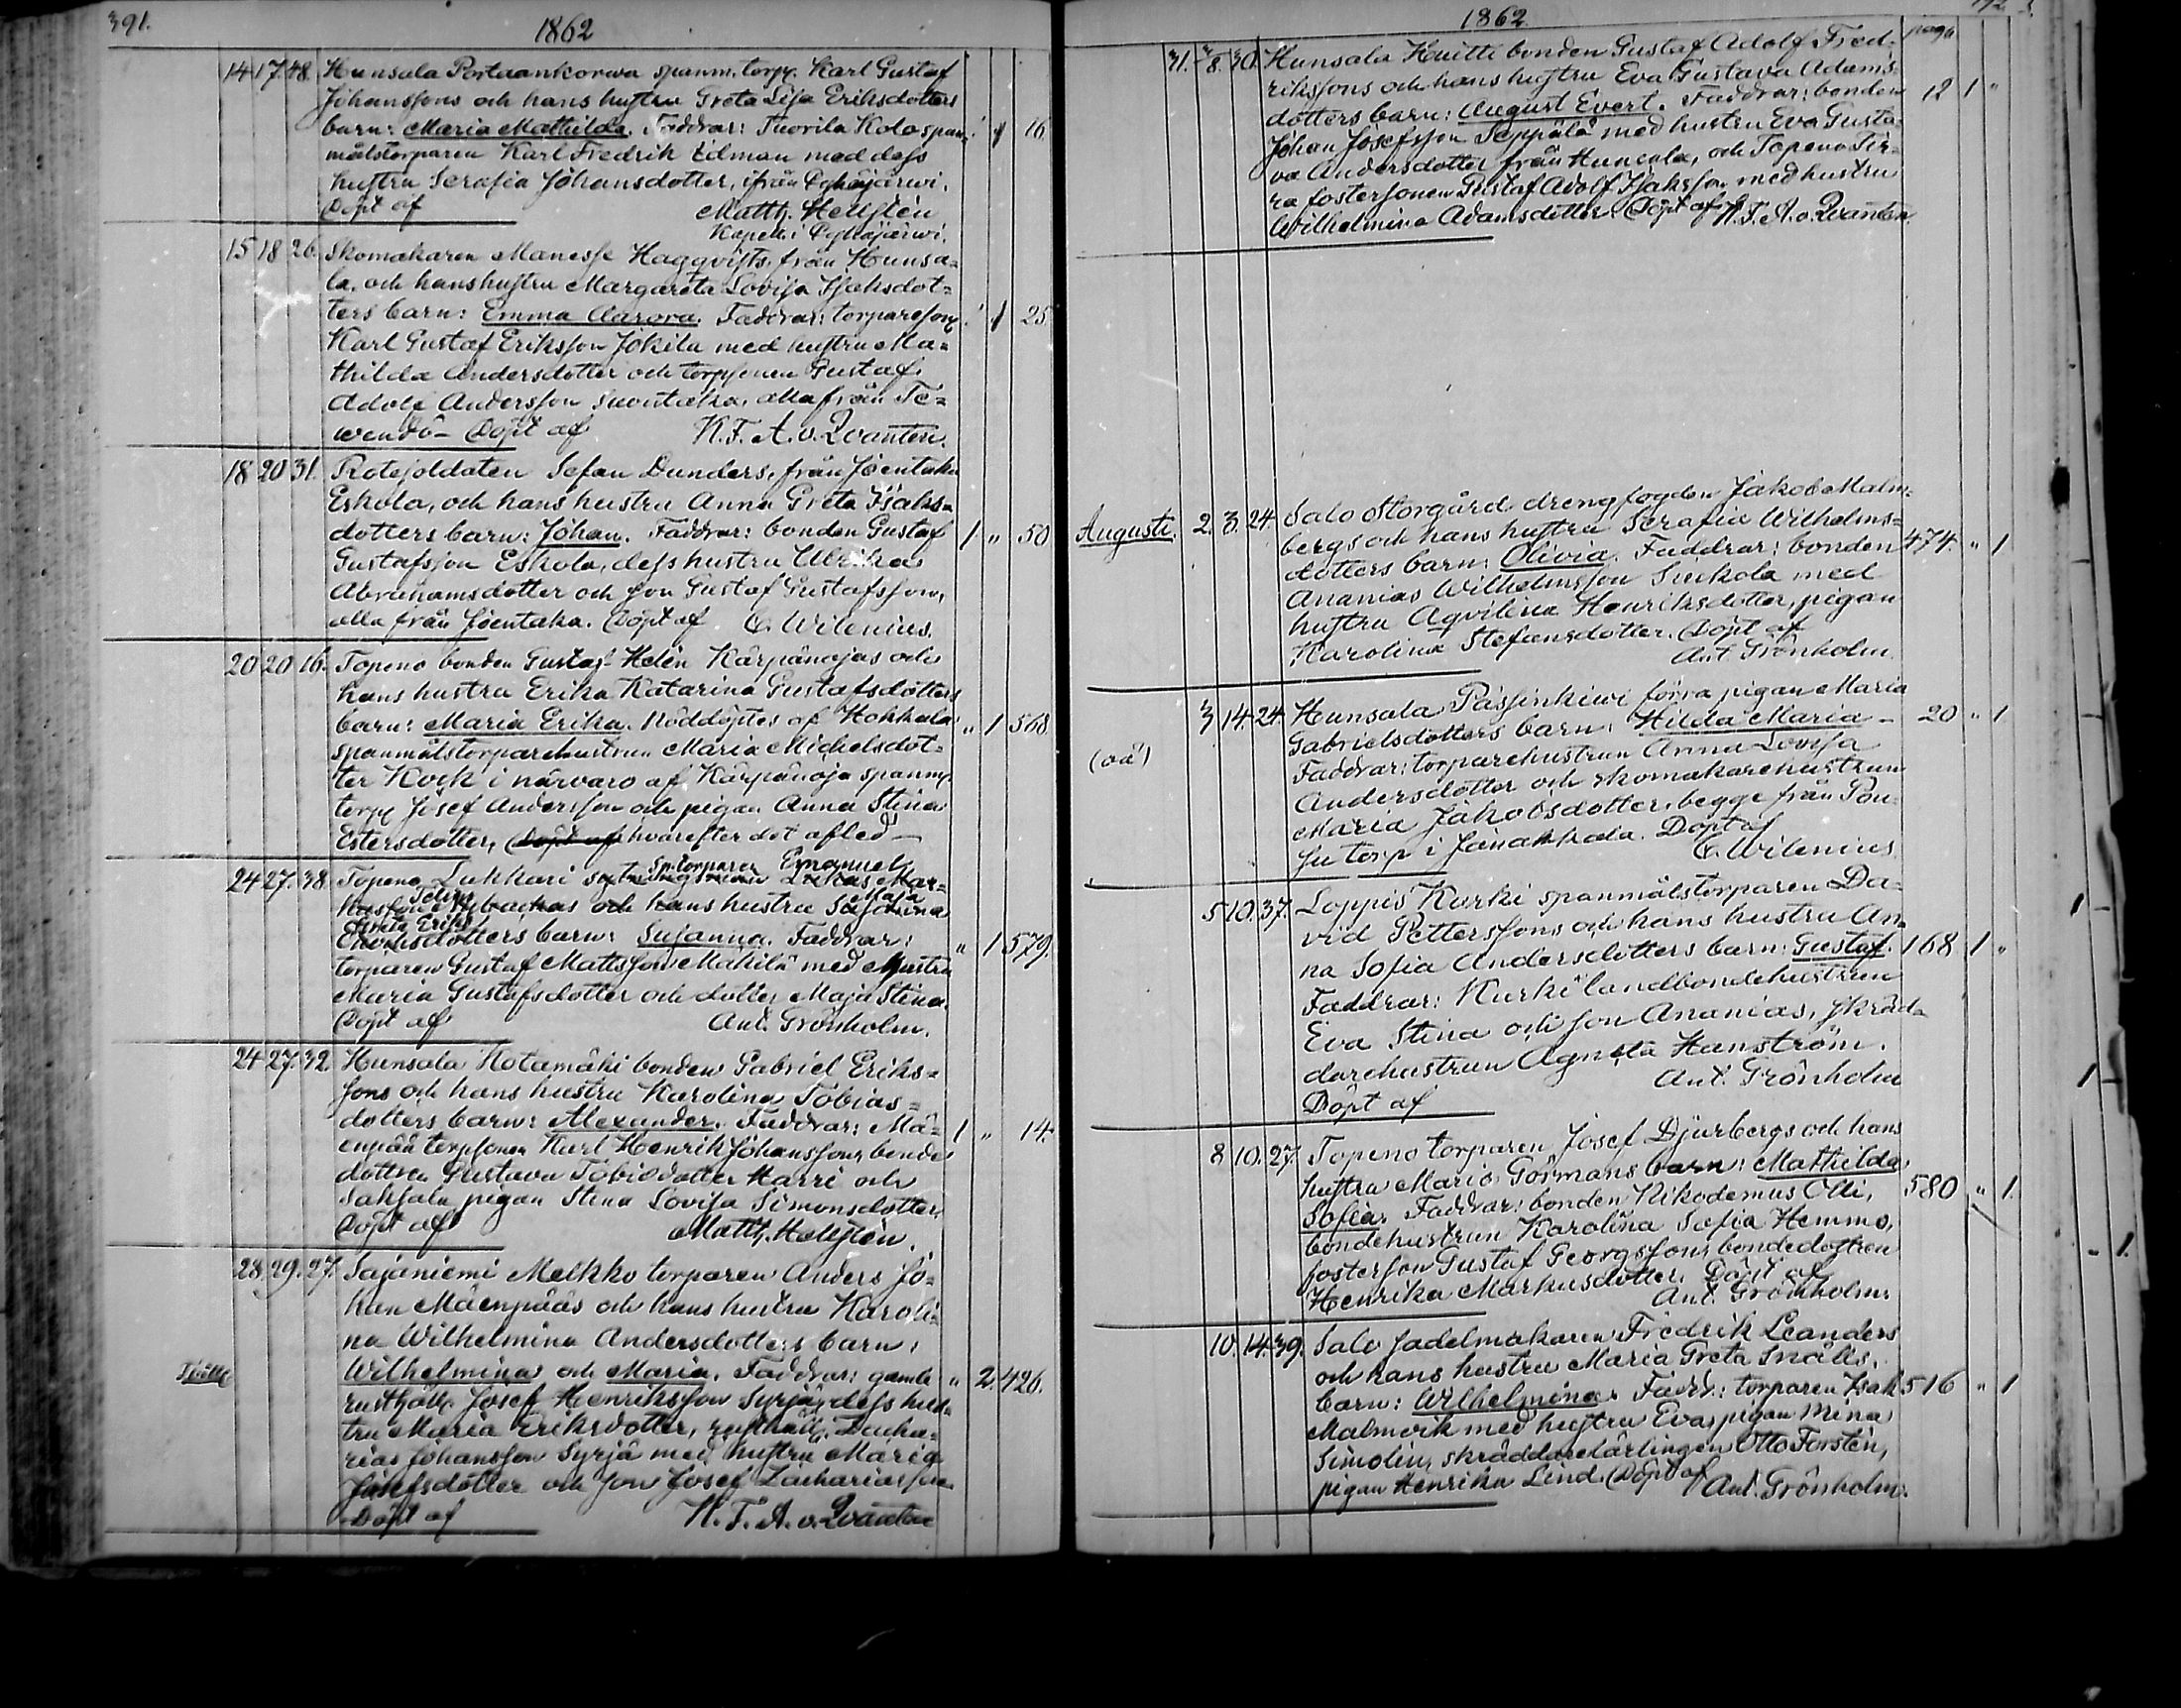 391.
1862
14 17. 48. Hunsala Portaankorwa spanm. torp. Karl Gustaf
Johanssons och hans hustru Greta Lisa Eriksdotters
barn: Maria Mathilda. Faddrar: Tuorila Kolo span- " 1 16.
målstorparen Karl Fredrik Edman med dess
hustru Serafia Johansdotter, ifrån Pyhäjärwi.
Döpt af Matth. Hellstén
Kapell. i Pyhäjärwi.
15 18 26. Skomakaren Manasse Haggqvists, från Hunsa=
la, och hans hustru Margareta Lovisa Isaksdot=
ters barn: Emma Aurora. Faddrar: torpareson " 1 25
Karl Gustaf Eriksson Jokila med hustru Ma=
thilda Andersdotter och torpsonen Gustaf
Adolf Andersson Suontaka, alla från Te=
wändö - Döpt af K. F. A. v. Qvanten.
18 20 31. Rotesoldaten Stefan Dunders, från Joentaka
Eskola, och hans hustru Anna Greta Isaks=
dotters barn: Johan. Faddrar: bonden Gustaf 1 " 50
Gustafsson Eskola, dess hustru Ulrika
Abrahamsdotter och son Gustaf Gustafsson,
alla från Joentaka. Döpt af C. Wilenius.
20 20 16. Topeno bonden Gustaf Helén Kärpänojas och
hans hustru Erika Katarina Gustafsdotters
barn: Maria Erika. Nöddöptes af Hokkala " 1 568.
spanmålstorparehustrun Maria Michelsdot=
ter Kock i närvaro af Kärpänoja spanm.
torp. Josef Andersson och pigan Anna Stina
Estersdotter, Döpt af hvarefter det afled -
Sp. torparen Emanuel
24 27. 38. Topeno Lukkari Lukas Mar=
Maja
kusson och hans hustru
Greta Eriks
dotters barn: Susanna. Faddrar: " 1 579.
torparen Gustaf Mattsson Mäkilä med hustru
Maria Gustafsdotter och dotter Maja Stina.
Döpt af Ant. Grönholm.
24 27. 32. Hunsala Hotamäki bonden Gabriel Eriks=
sons och hans hustru Karolina Tobias=
dotters barn: Alexander. Faddrar: Mä= 1 " 14.
enpää torpsonen Karl Henrik Johansson, bonde
dottren Gustava Tobiedotter Harri och
Sahsala pigan Stina Lovisa Simonsdotter.
Döpt af Matth. Hellstén.
28 29. 27. Sajaniemi Melkko torparen Anders Jo=
han Mäenpääs och hans hustru Karoli=
na Wilhelmina Andersdotters barn:
Tvill. Wilhelmina och Maria. Faddrar: gamle " 2. 426.
rusthåll. Josef Henriksson Syrjä, dess hus=
tru Maria Eriksdotter, rusthåll. Zacha=
rias Johansson Syrjä med hustru Maria
Josefsdotter och son Josef Zachariasson
Döpt af K. F. A. v. Qvanten
1862.
pag.
31. 3/8. 30. Hunsala Kuitti bonden Gustaf Adolf Fred=
rikssons och hans hustru Eva Gustava Adams=
dotters barn: August Evert. Faddrar: bonden 12 1 "
Johan Josefsson Seppälä med hustru Eva Gusta=
va Andersdotter från Hunsala, och Topeno Tir=
ra fostersonen Gustaf Adolf Isaksson med hustru
Wilhelmina Adamsdotter. Döpt af K. F. A. v. Qvanten.
Augusti. 2. 3. 24. Salo Storgård drengfogden Jakob Malm=
bergs och hans hustru Serafia Wilhelms=
dotters barn: Olivia. Faddrar: bonden 474. " 1
Ananias Wilhelmsson Suikola med
hustru Aqvilina Henriksdotter, pigan
Karolina Stefansdotter. Döpt af
Ant. Grönholm.
3 14. 24. Hunsala Passinkiwi förra pigan Maria
Gabrielsdotters barn: Hilda Maria - 20 " 1
(oä) Faddrar: torparehustrun Anna Lovisa
Andersdotter och skomakarehustrun
Maria Jakobsdotter, begge från Pou=
su torp i Janakkala. Döpt af
C. Wilenius
5 10. 37. Loppis Kurki spanmålstorparen Da=
vid Petterssons och hans hustru An=
na Sofia Andersdotters barn: Gustaf. 168 1 "
Faddrar: Kurki landbondehustrun
Eva Stina och son Ananias, skräd=
darehustrun Agneta Hanström.
Döpt af Ant. Grönholm
8 10. 27 Topeno torparen Josef Djurbergs och hans
hustru Maria Görmans barn: Mathilda
Sofia. Faddrar: bonden Nikodemus Olli, 580 " 1.
bondehustrun Karolina Sofia Hemmo,
fosterson Gustaf Georgsson, bondedottren
Henrika Markusdotter. Döpt af
Ant. Grönholm.
10. 14. 39. Salo sadelmakaren Fredrik Leanders
och hans hustru Maria Greta Snälls,
barn: Wilhelmina. Faddr.: torparen Isak 516 " 1
Malmerik med hustru Eva, pigan Mina
Simolin, skräddarelärlingen Otto Forstén,
pigan Henrika Lind. Döpt af Ant. Grönholm.